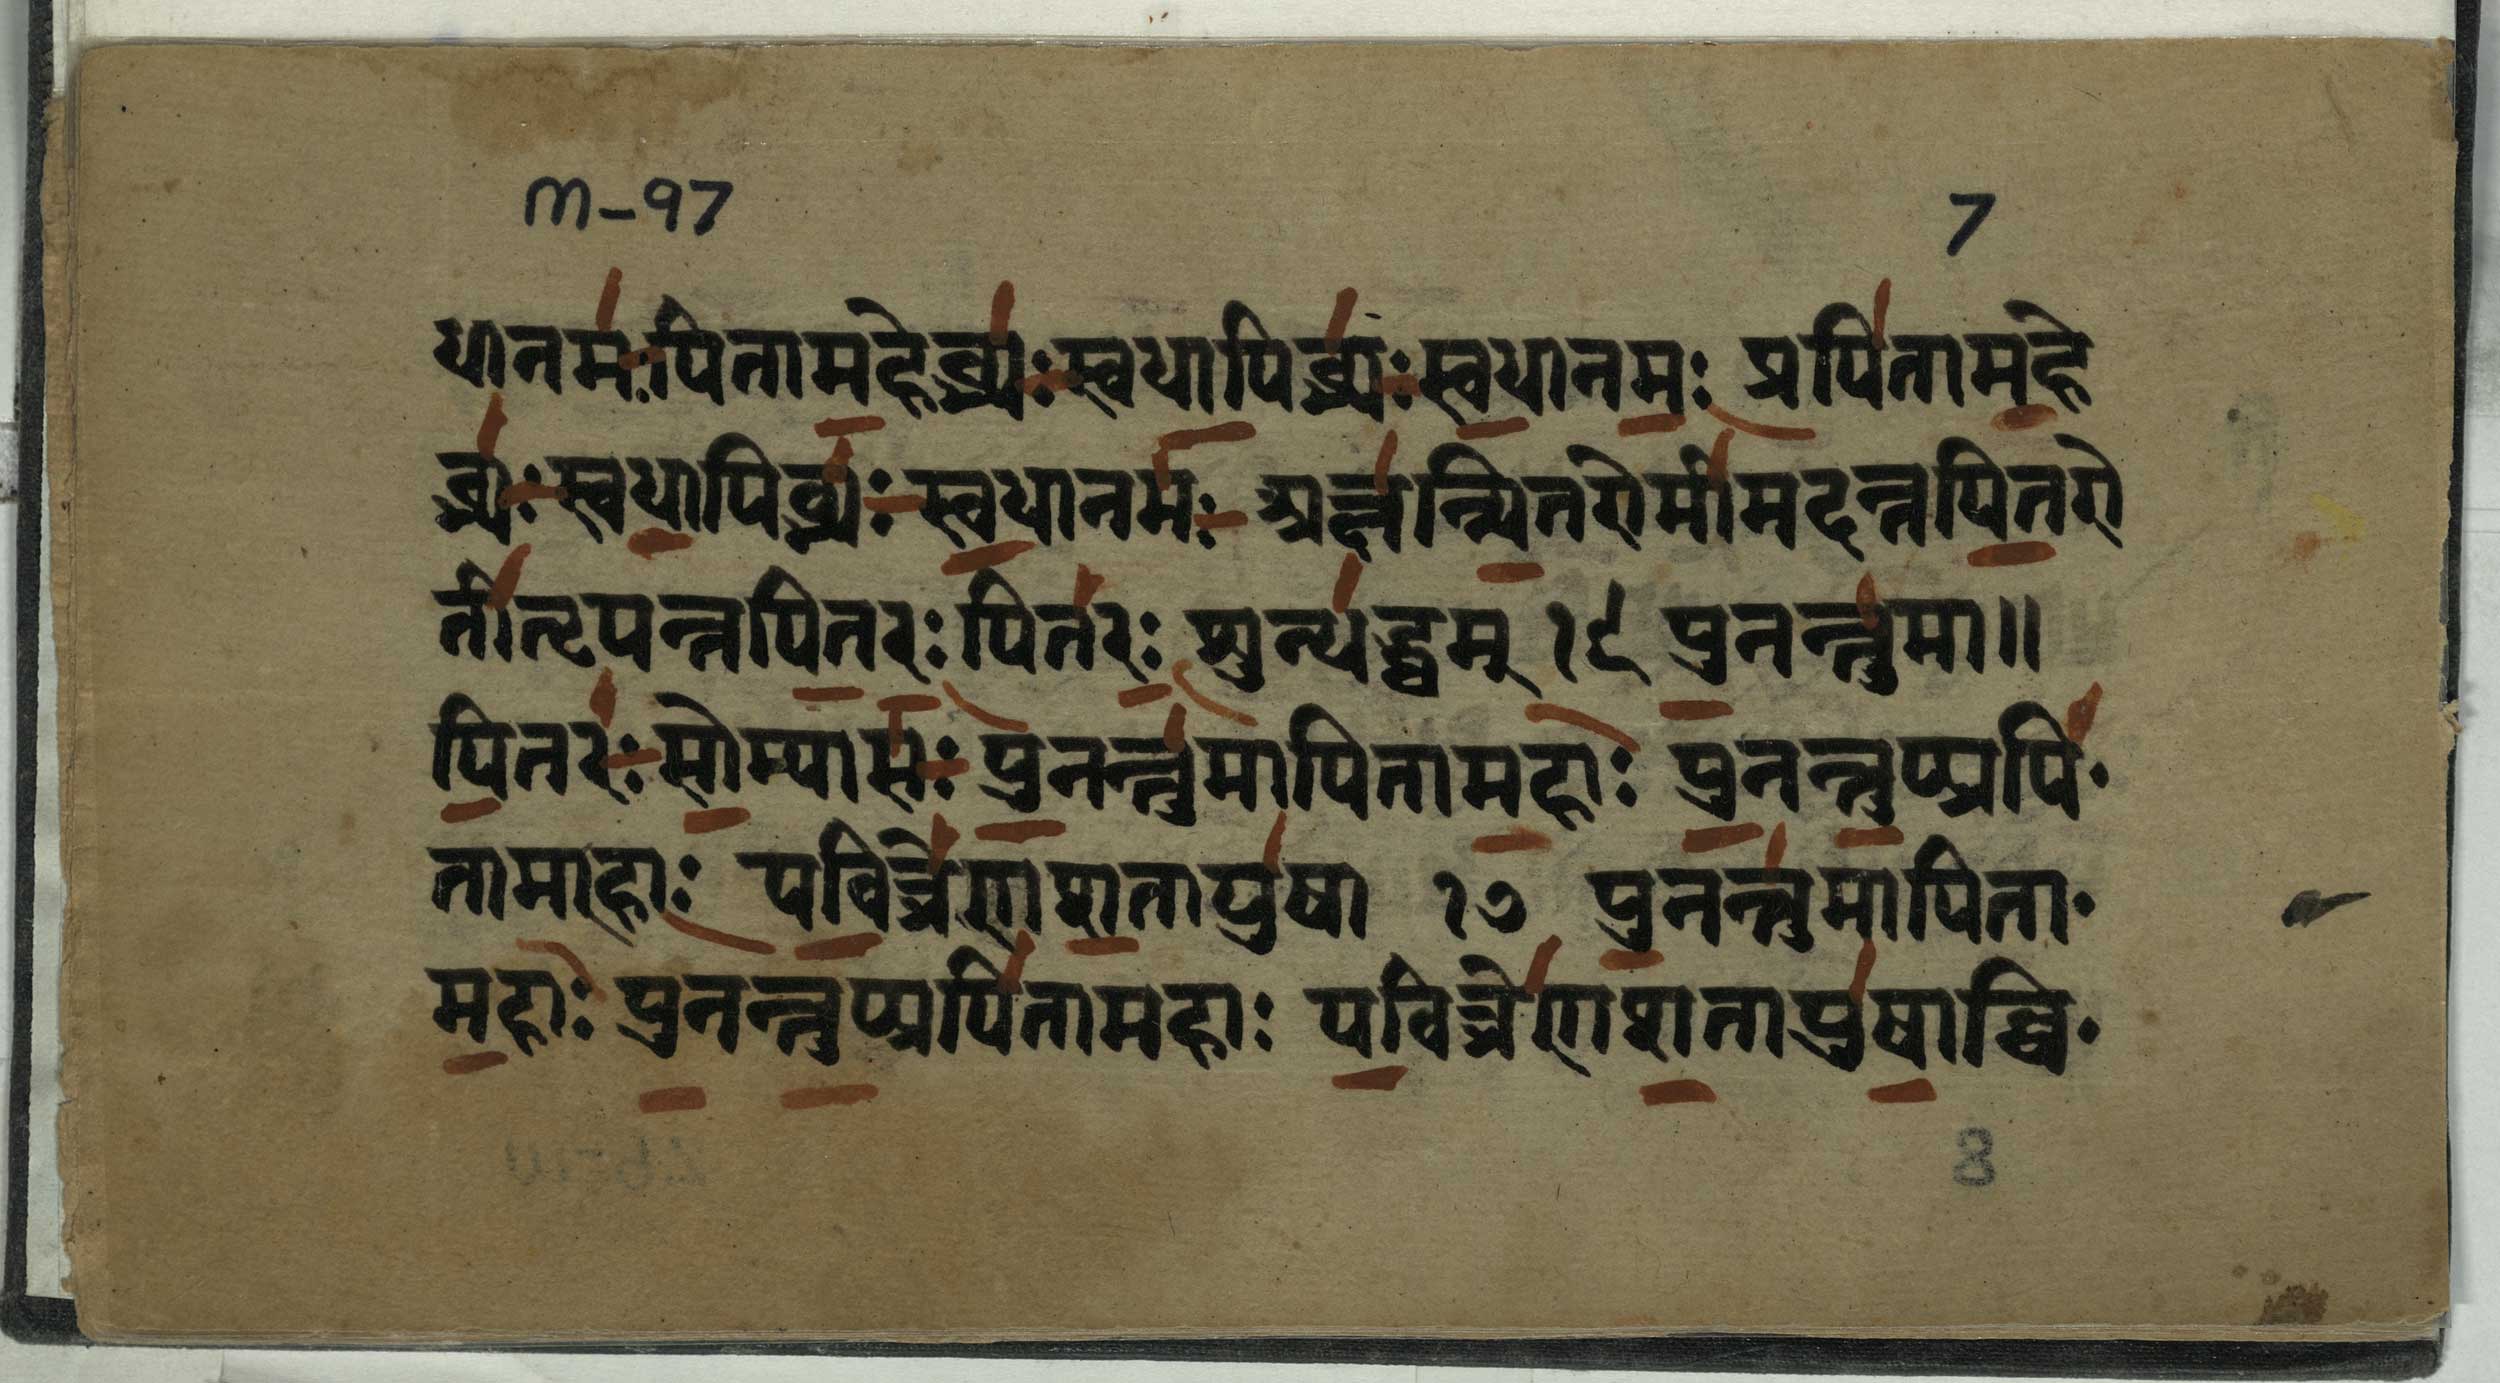 m-97 7
धानमः पितामहेब्भ्यः स्वधापिब्भ्यः स्वधानमः प्रपितामहे
ब्भ्यः स्वधापिब्भ्यः स्वधानमः अक्षन्न्पितरोमीमदन्नपितरो
तीतृपन्नपितरः पितरः शुन्धद्ध्वम् १९ पुनन्तुमा॥
पितरः सोम्यासः पुनन्तुमापितामहाः पुनन्तुप्प्रपि
तामाहाः पवित्रेणशतापुषा १७ पुनन्तुमापिता
महाः पुनन्तुप्प्रपितामहाः पवित्रेणशतापुषाव्वि